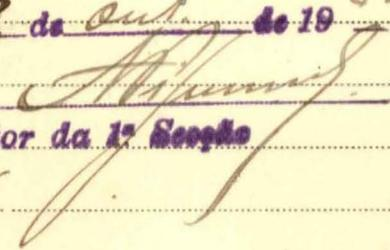 de out. de 19
or da 1ª Secção